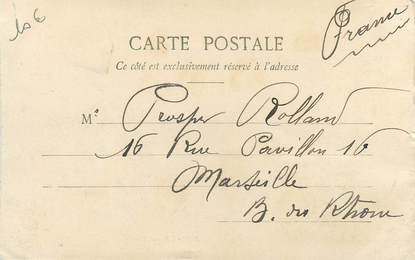 10 €
France
CARTE POSTALE
Ce côté est exclusivement réservé à l'adresse
M. Prosper Rolland
16 Rue Pavillon 16
Marseille
B. du Rhône